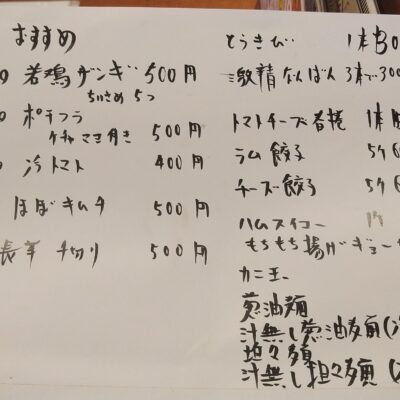 おすすめ
若鶏ザンギ 500円
ちいさめ 5つ
ポテフラ
ケチャマヨ付き 500円
冷トマト 400円
ほぼキムチ 500円
長芋千切り 500円
とうきび 1本
なんばん 3本で300
トマトチーズ春捲 1本
ラム餃子 5ケ
チーズ餃子 5ケ
ハムスイコー
もちもち揚げギョー
カニ玉
葱油麺
汁無し葱油麺
坦々麺
汁無し坦々麺